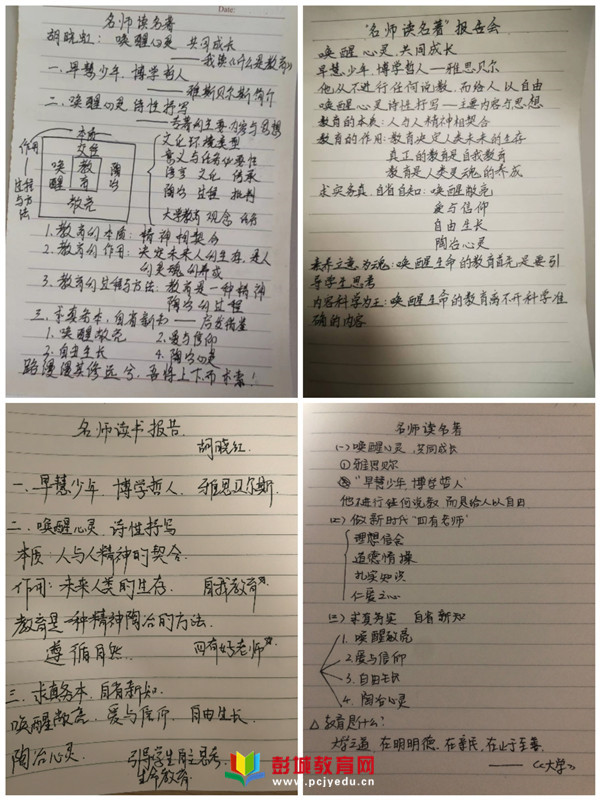 Date:
名师读名著
胡晓虹: 唤醒心灵 共同成长
——我读《什么是教育》
一、早慧少年,博学哲人
——雅斯贝尔斯简介
二、唤醒心灵 诗性抒写
——专著的主要内容与思想
作用
本质
交往
唤醒
教育
陶冶
敞亮
过程与方法
文化环境类型
意义与任务必要性
语言 文化 传承
陶冶 过程 批判
大学教育 观念 任务
1.教育的本质: 精神相契合
2.教育的作用: 决定未来人的生存,是人
的灵魂的养成
3.教育的过程与方法: 教育是一种精神
陶冶的过程
三、求真务本,自有新知——
1.唤醒敞亮 2.爱与信仰
3.自由生长 4.陶冶心灵
路漫漫其修远兮,吾将上下而求索!
"名师读名著"报告会
唤醒心灵,共同成长
早慧少年,博学哲人——雅思贝尔
他从不进行任何说教,而给人以自由
唤醒心灵诗性抒写——主要内容与思想
教育的本质:人与人精神相契合
教育的作用:教育决定人类未来的生存
真正的教育是自我教育
教育是人类灵魂的养成
求实务真,自省自知:唤醒敞亮
爱与信仰
自由生长
陶冶心灵
素养立意为魂:唤醒生命的教育首先是要引
导学生思考
内容科学为王:唤醒生命的教育离不开科学准
确的内容
名师读书报告
胡晓红
一、早慧少年,博学哲人 雅思贝尔斯.
二、唤醒心灵 诗性抒写
本质:人与人精神的契合.
作用:未来人类的生存. 自我教育
教育是一种精神陶冶的方法.
遵循自然. 四有好老师
三、求真务本,自省新知.
唤醒敞亮.爱与信仰.自由生长.
陶冶心灵. 引导学生自主思考
生命教育
名师读名著
(一)唤醒心灵,共同成长
①雅思贝尔
②"早慧少年,博学哲人"
他不进行任何说教,而是给人以自由
(二)做新时代"四有老师"
理想信念
道德情操
扎实知识
仁爱之心
(三)求真务实 自省新知
1.唤醒敞亮
2.爱与信仰
3.自由生长
4.陶冶心灵
△教育是什么?
大学之道,在明明德,在亲民,在止于至善.
——《大学》
彭城教育网
www.pcjyedu.cn